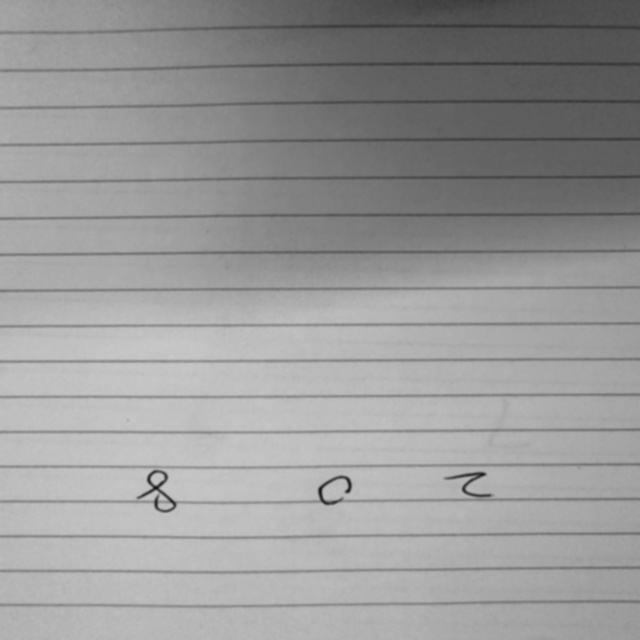 8 0 2